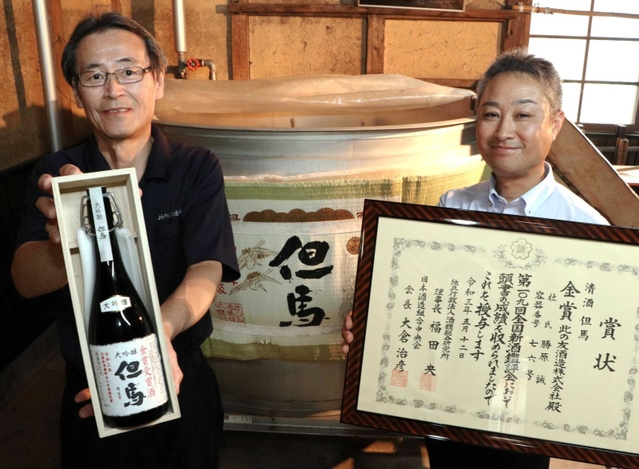 大吟醸 但馬
大吟醸
金賞受賞酒
大吟醸
但馬
但馬
賞状
清酒 但馬
金賞 此の友酒造株式会社殿
杜氏 勝原 誠
容器番号 七六号
第一〇九回全国新酒鑑評会において
頭書の成績を収められましたので
これを授与します
令和三年五月二十二日
独立行政法人酒類総合研究所
理事長 福田 央
日本酒造組合中央会
会長 大倉 治彦